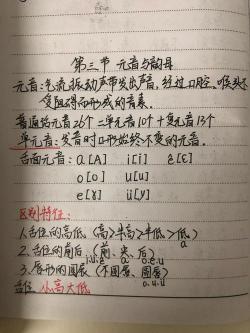 第三节 元音与韵母
元音:气流振动声带发出声音,经过口腔、喉头不
受阻碍而形成的音素.
普通话元音26个 = 单元音10个 + 复元音13个
单元音:发音时口形始终不变的元音.
舌面元音: a [A] i [i] ê [ε]
o [o] u [u]
e [ɤ] ü [y]
区别特征:
1.舌位的高低 (高>半高>半低>低)
a
2.舌位的前后 (前、央、后)
i.ü.ê a o.e.u
3.唇形的圆展 (不圆唇、圆唇)
o.u.ü
舌位 从高大低